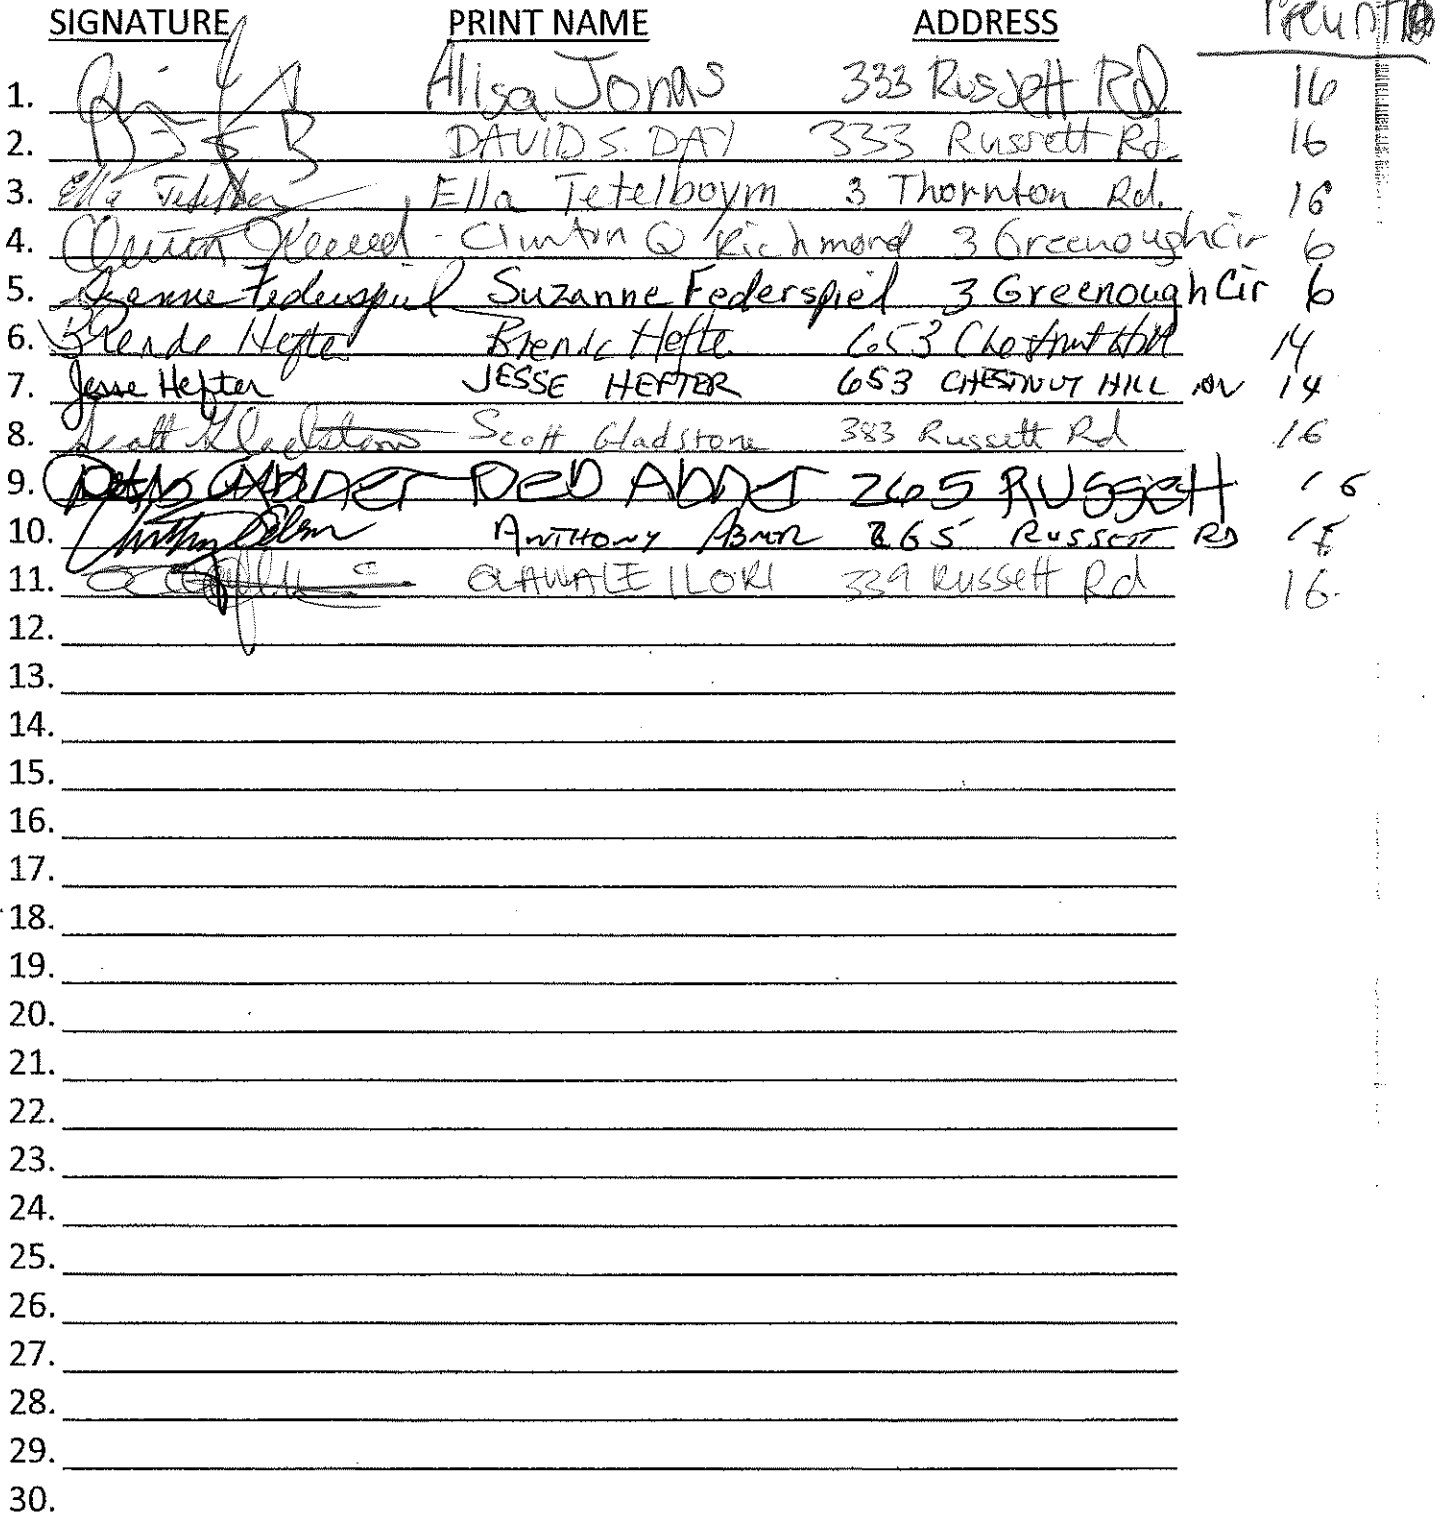 SIGNATURE PRINT NAME ADDRESS
1. Alisa Jonas 333 Russett Rd 16
2. DAVID S. DAY 333 Russett Rd. 16
3. Ella Tetelboym 3 Thornton Rd. 16
4. Clinton Q Richmond 3 Greenough Cir 6
5. Suzanne Federspiel Suzanne Federspiel 3 Greenough Cir 6
6. Brenda Hefter Brenda Hefte 653 Chestnut Hill 14
7. Jesse Hefter JESSE HEFTER 653 CHESTNUT HILL AV 14
8. Scott Gladstone Scott Gladstone 383 Russett Rd 16
9. Deb Abner 265 RUSSett 16
10. ANTHONY ABNER 265 RUSSETT RD
11. OLAWALE ILORI 339 Russett Rd 16.
12.
13.
14.
15.
16.
17.
18.
19.
20.
21.
22.
23.
24.
25.
26.
27.
28.
29.
30.